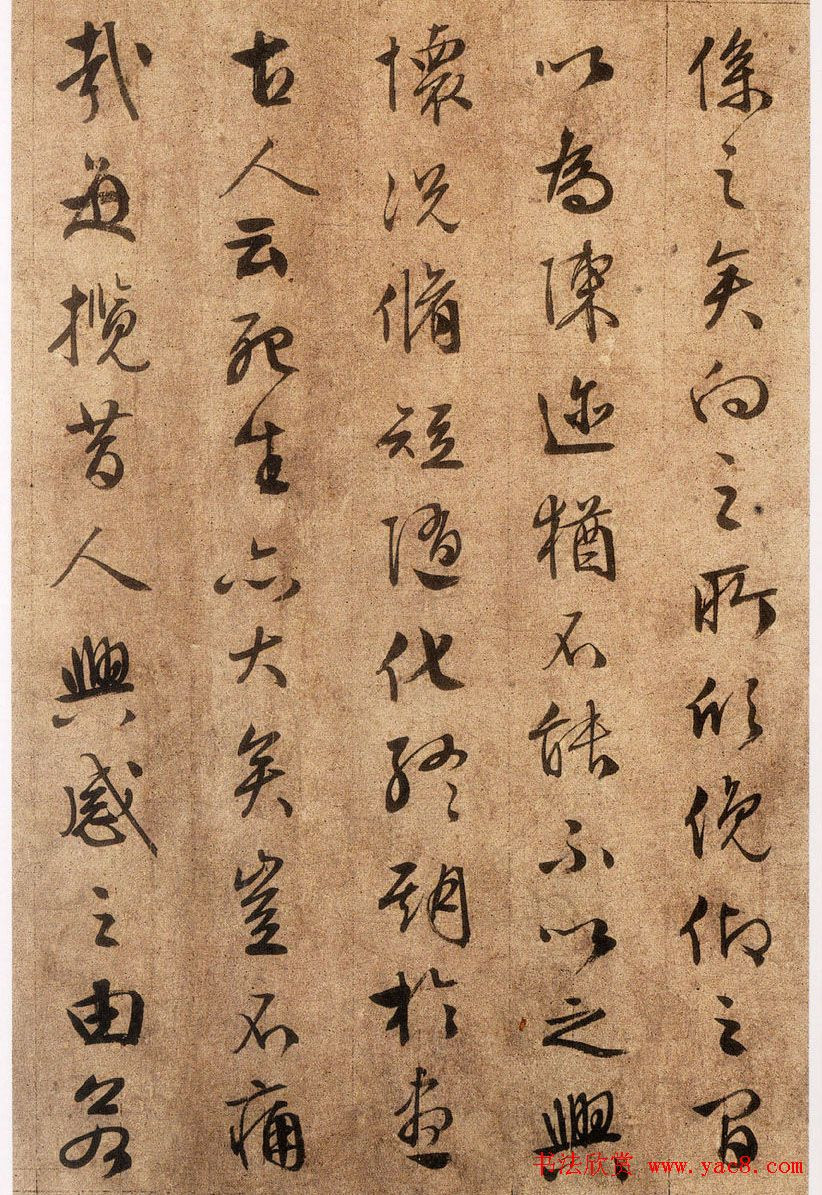 係之矣向之所欣俛仰之間
以為陳迹猶不能不以之興
懷況脩短隨化終期於盡
古人云死生亦大矣豈不痛
哉每攬昔人興感之由若
书法欣赏 www.yac8.com